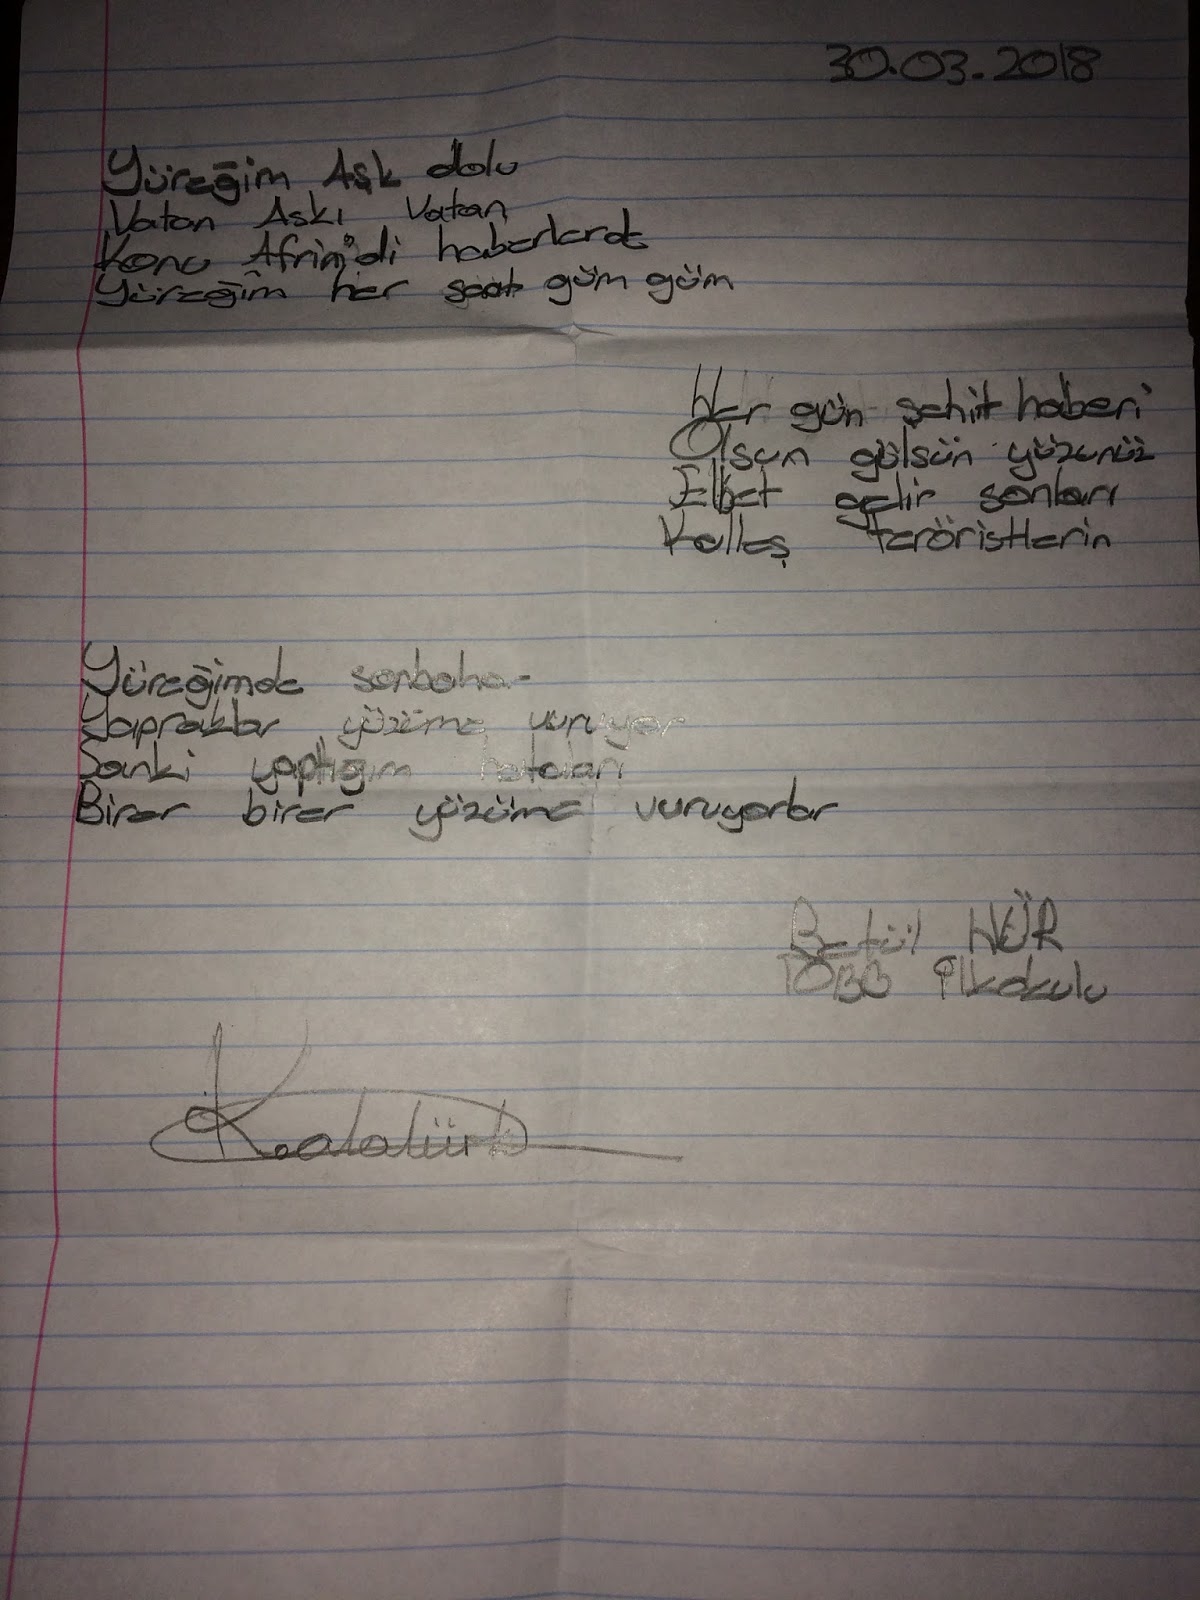 30.03.2018
Yüreğim Aşk dolu
Vatan Aşkı Vatan
Konu Afrin'di haberlerde
Yüreğim her saat güm güm
Her gün şehit haberi
Olsun gülsün yüzünüz
Elbet gelir sonları
Kalleş teröristlerin
Yüreğimde sonbahar
Yapraklar yüzüme vuruyor
Sanki yaptığım hataları
Birer birer yüzüme vuruyorlar
Betül HÜR
TOBB ilkokulu
K.atatürk